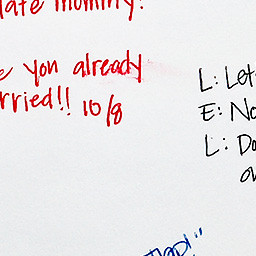 late mommy!
e you already
rried!! 10/8
L: Let
E: No
L: Do